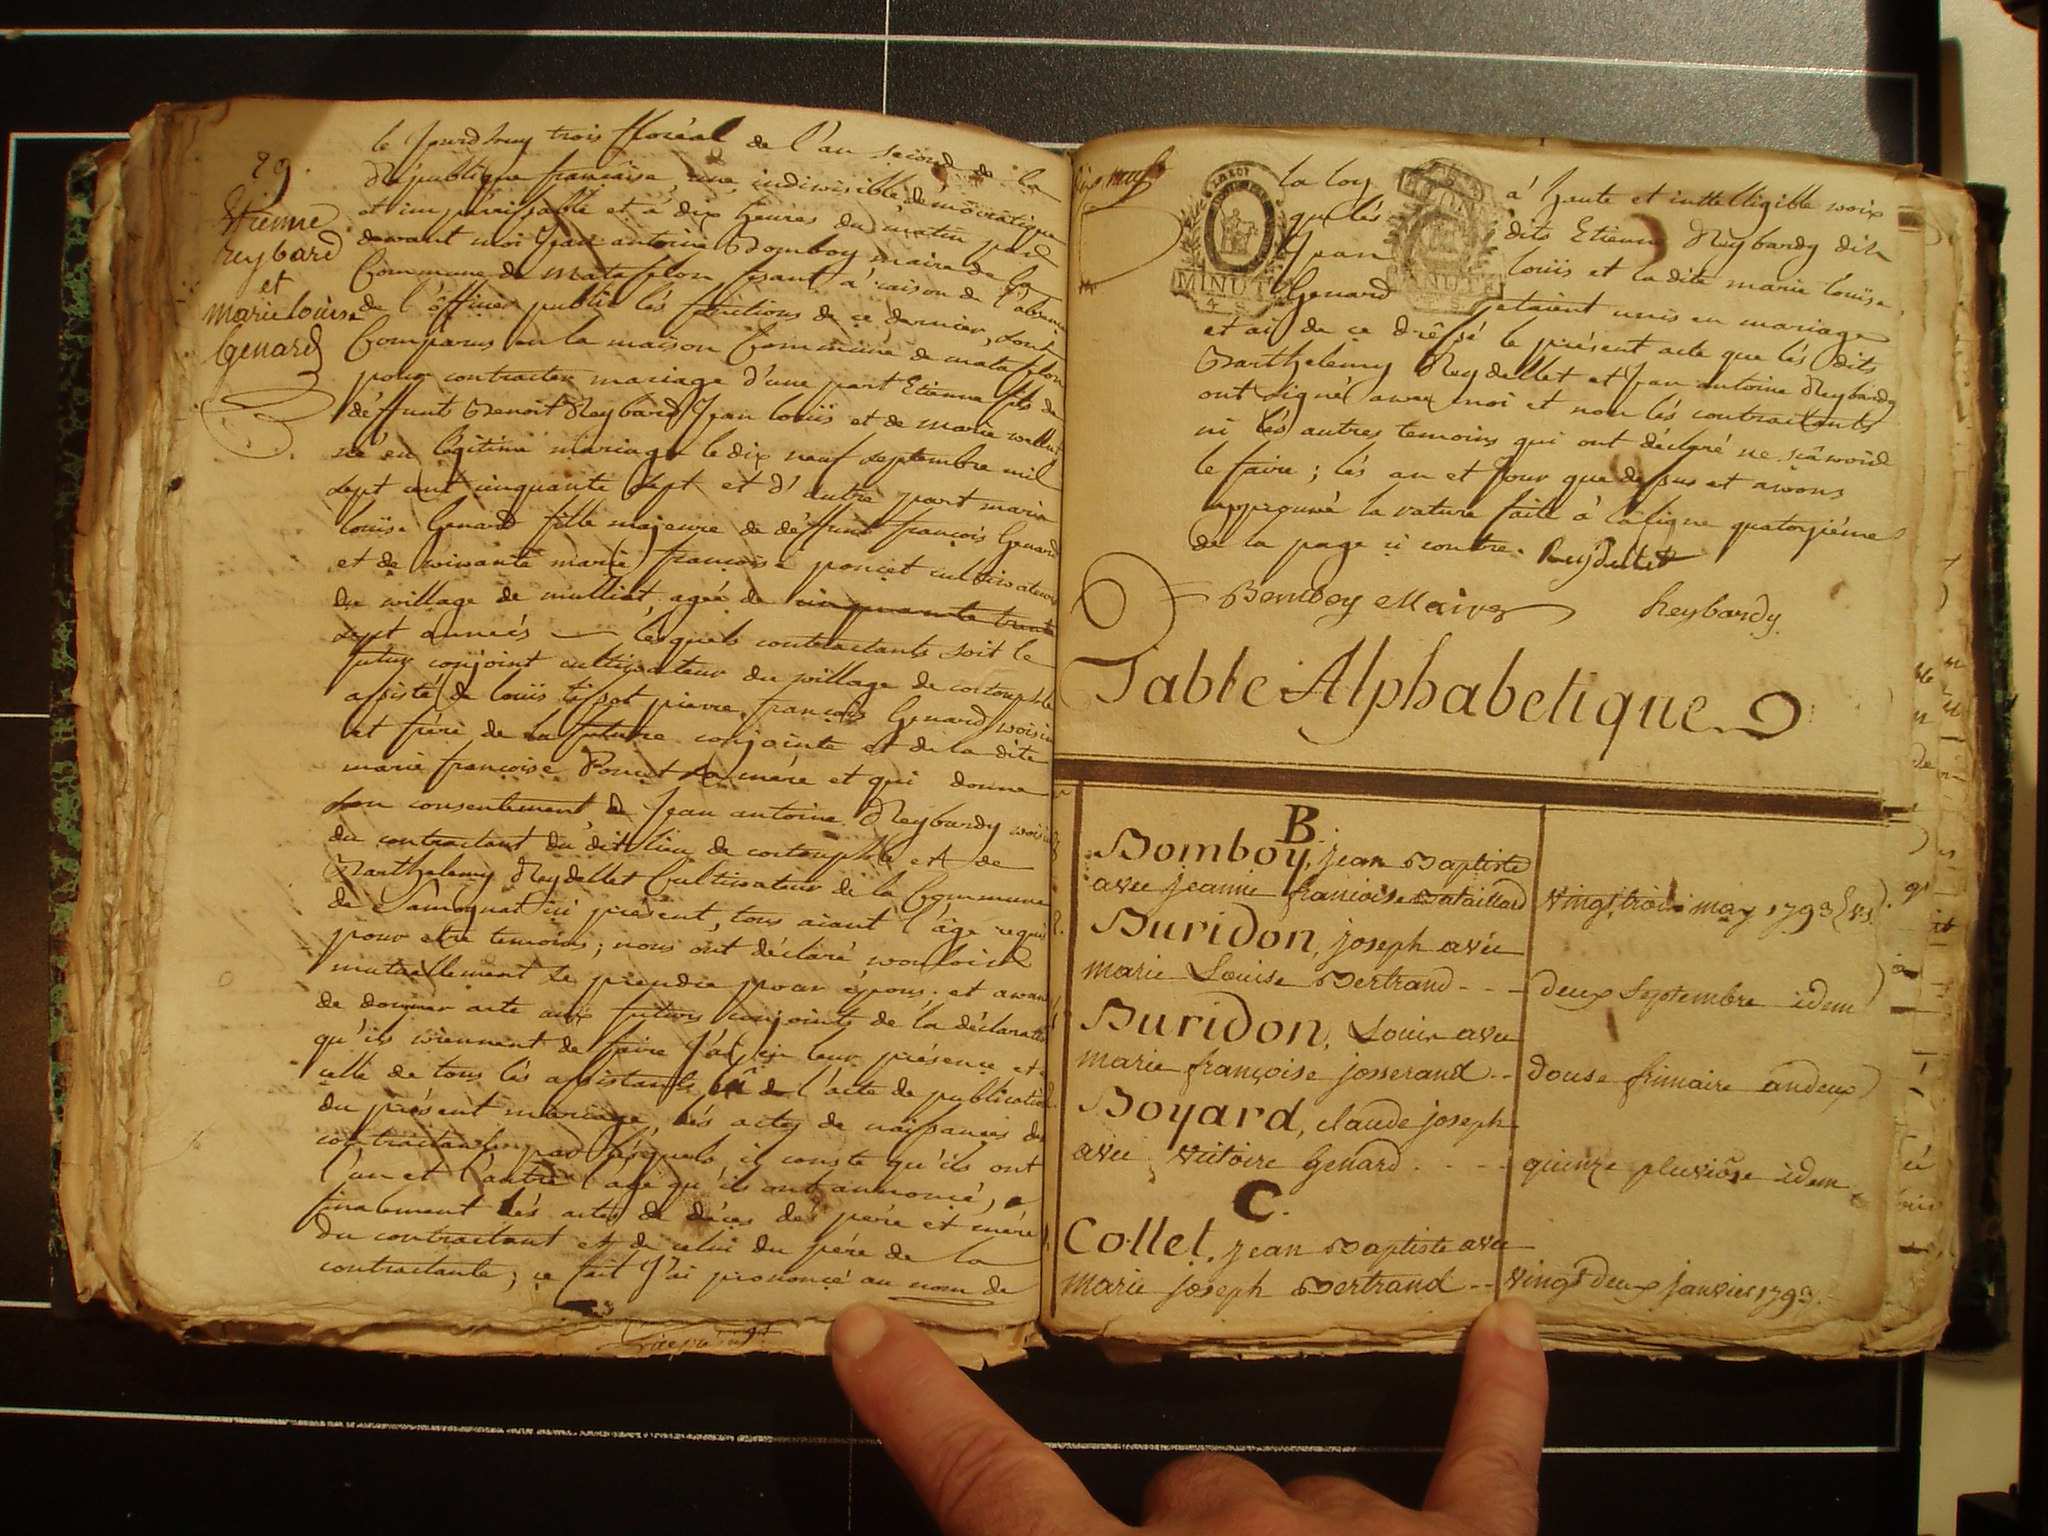 29.
Etienne
reybard
et
marie louise
Genard
le Jourdhuy trois floréal de l'an second de la
République francaise, une, indiwisible democratique
et impérissable et à dix heures du matin par
dewant moi Jean antoine Bomboy maire de la
Commune de Matafelon fesant à raison de l'absence
de l'officier public lés fonctions de ce dernier, sont
Comparus en la maison Commune de matafelon
pour contracter mariage d'une part Etienne fils de
déffunt Benoit Reybard Jean louïs et de marie
né en légitime mariage le dix neuf septembre mil
sept cent cinquante sept et d'autre part marie
louïse Genard fille majeure de déffunt françois Genard
et de wiwante marie francoise poncet cultiwateurs
du willage de mulliat, agée de cinquante trente
sept années — lesquels contractants soit le
futur conjoint cultiwateur du willage de
assisté de louïs tissot pierre françois Genard woisin
et frère de la future conjointe et de la dite
marie francoise Poncet sa mére et qui donne
son consentement, de Jean antoine Reybardy woisin
du contractant du dit lieu de et de
Barthelemy Reydellet Cultiwateur de la Commune
de Samognat ici présent, tous aiant l'âge requis
pour etre temoins; nous ont déclaré wouloir
mutuellement se prendre pour époux. et awant
de donner acte aux futurs conjoints de la déclaration
qu'ils wiennent de faire J'ai, en leur présence et
celle de tous lés assistants, lû de l'acte de publication
du présent mariage, lés actes de naissances des
contractants par lésquels il conste qu'ils ont
l'un et l'autre l'age qu'ils ont annoncé, &
finalement lés actes de décés des père et mére
du contractant et de celui du père de la
contractante; ce fait J'ai prononcé au nom de
dix neuf
la loy à haute et inttelligible woix
que lés dits Etienne Reybardy dit
Jean louïs et la dite marie louïse
Genard etaient unis en mariage
LA LOY
MINUTE
4 S
MINUTE
et ai de ce dréssé le présent acte que lés dits
Barthelemy Reydellet et Jean antoine Reybardy
ont signé awec moi et non lés contractants
ni lés autres temoins qui ont déclaré ne sçawoir
le faire; lés an et Jour que dessus et awons
approuwé la rature faite à la ligne quatorziéme
de la page ci contre. Reydellet
Bomboy Maire Reybardy
Table Alphabetique
B.
Bomboy, jean Baptiste
avec jeanne francoise Bataillard vingt trois may 1793 (v.s.)
Buridon, joseph avec
marie Louise Bertrand - - - deux Septembre idem
Buridon, Louis avec
marie françoise josserand - - douse frimaire an deux
Boyard, claude joseph
avec victoire Genard . - - - quinze pluviôse idem
C.
Collet, jean Baptiste avec
marie joseph Bertrand - - vingt deux janvier 1793.